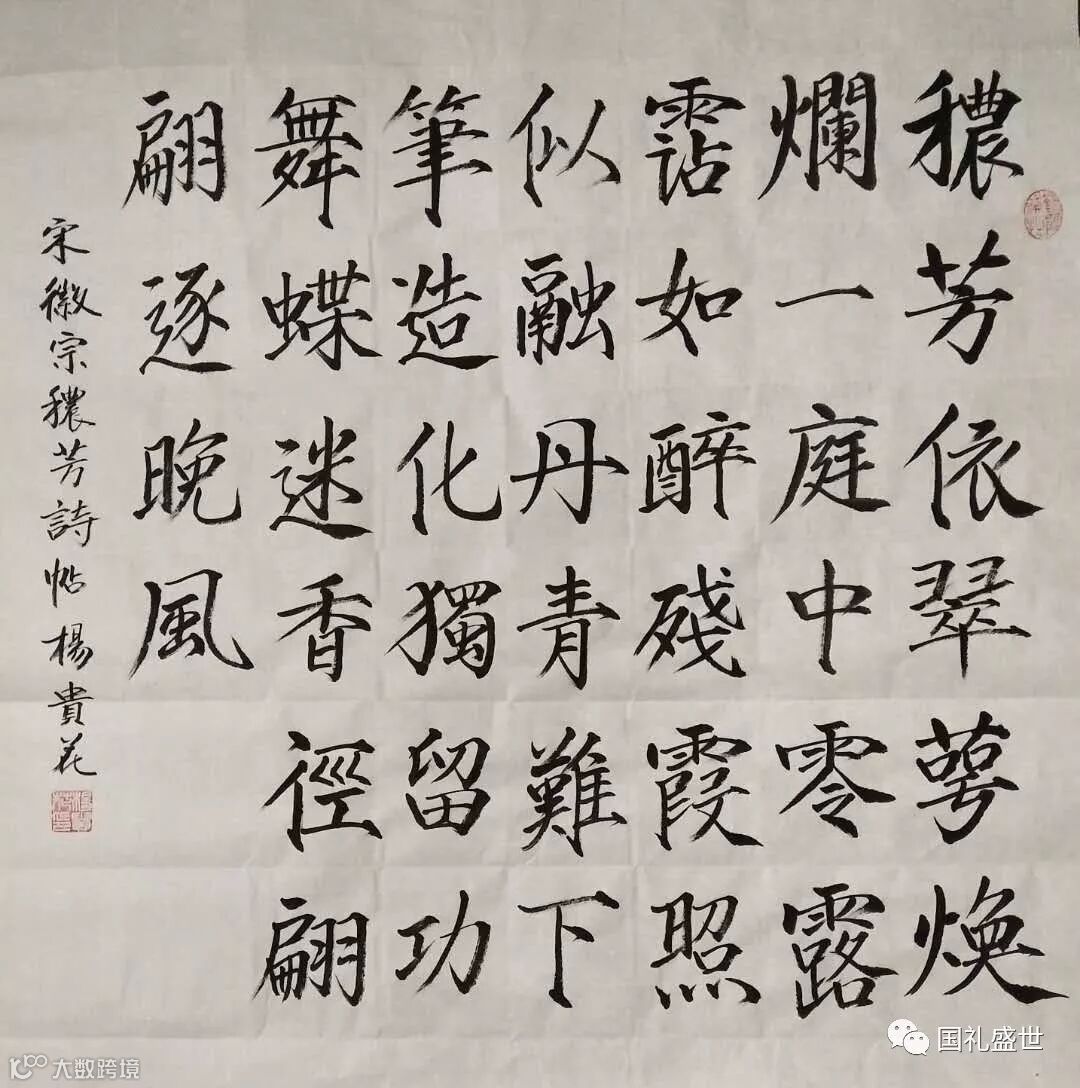 穠芳依翠萼煥
爛一庭中零露
霑如醉殘霞照
似融丹青難下
筆造化獨留功
舞蝶迷香徑翩
翩逐晚風
宋徽宗穠芳詩帖 楊貴花
国礼盛世
大数跨境